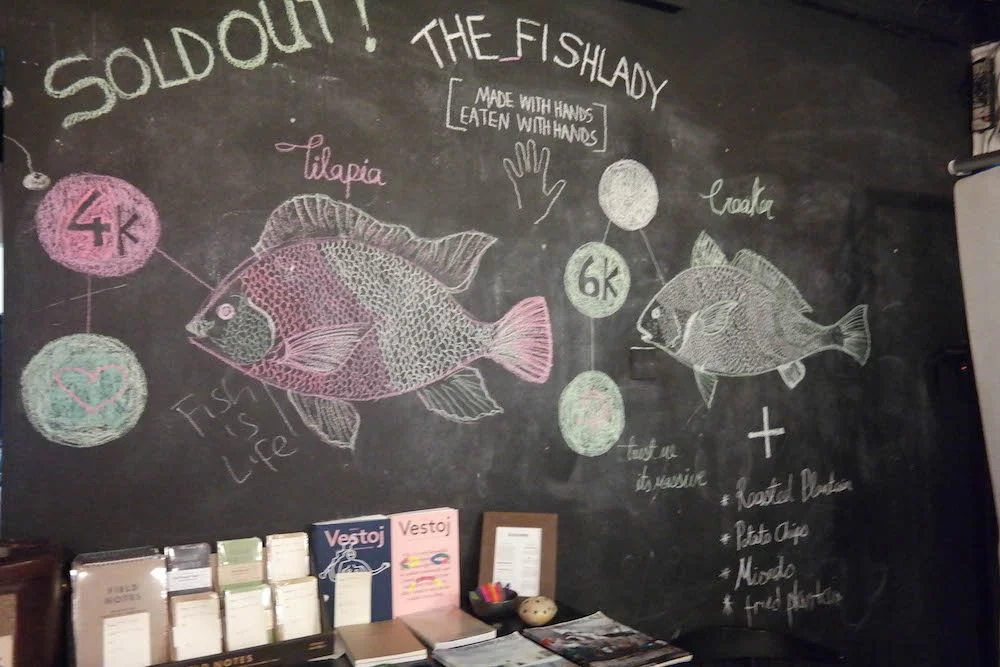 SOLDOUT!
THE_FISHLADY
[MADE WITH HANDS
EATEN WITH HANDS]
Tilapia
4k
Croaker
6k
Fish
is
Life
trust me
its massive
+
* Roasted Plantain
* Potato Chips
*
* fried plantain
Vestoj
Vestoj
FIELD
NOTES
NOTES